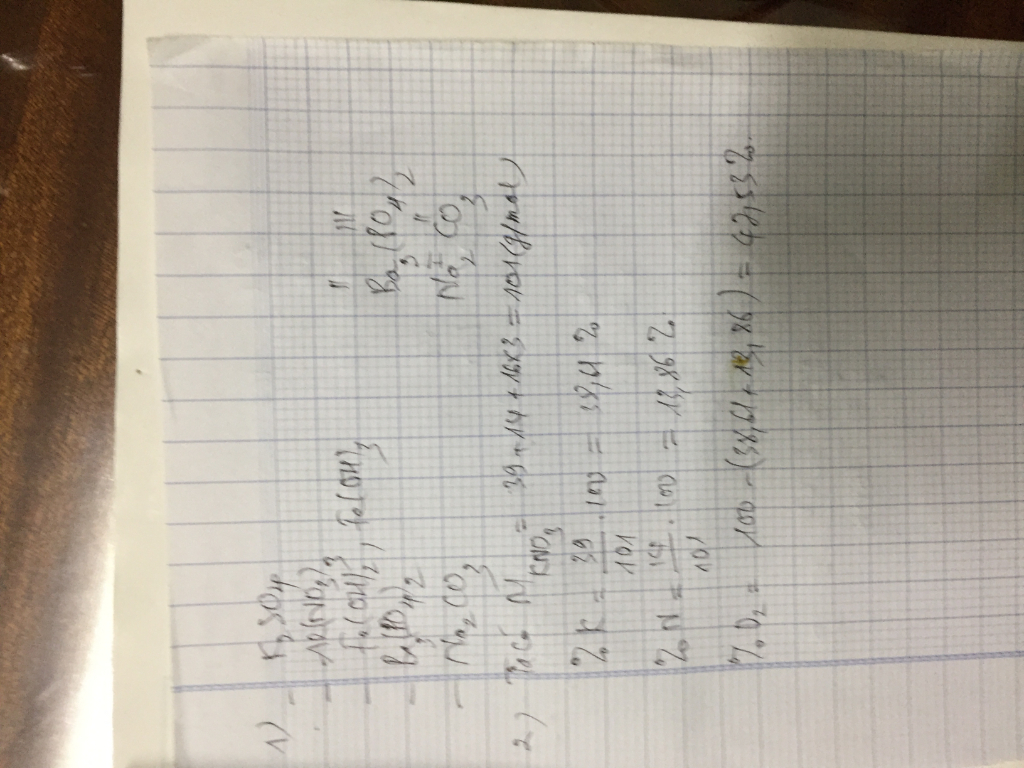 1) - K2SO4
- Al(NO3)3
- Fe(OH)2, Fe(OH)3
- Ba3(PO4)2
- Na2CO3
II III
Ba3(PO4)2
I II
Na2CO3
2) Ta có MKNO3 = 39+14+16x3 = 101(g/mol)
% K = 39/101 . 100 = 38,61 %
% N = 14/101 . 100 = 13,86 %.
% O2 = 100 - (38,61+13,86) = 42,53 %.